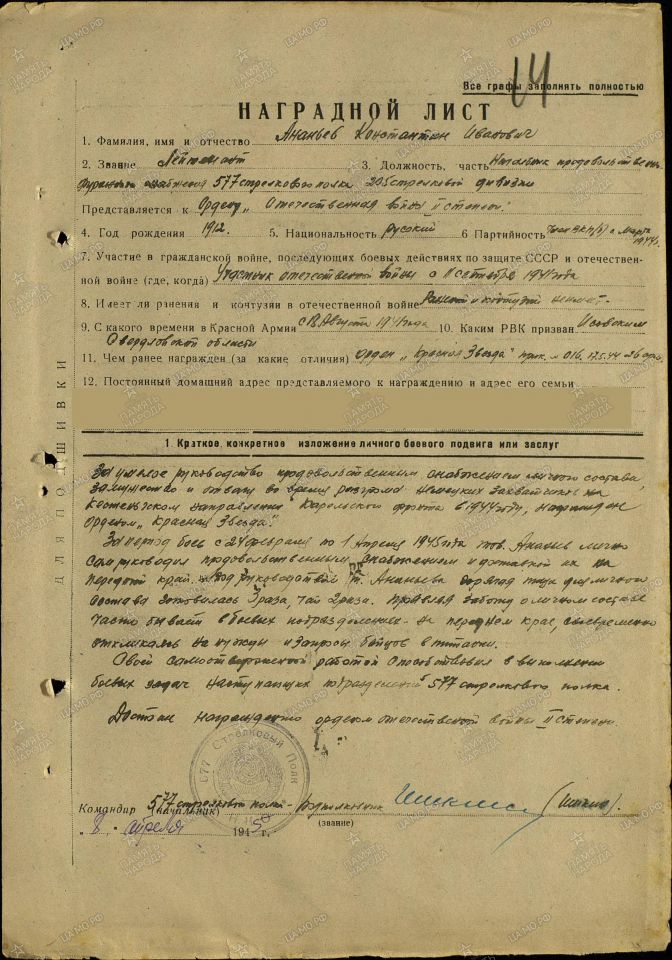 14
Все графы заполнять полностью
НАГРАДНОЙ ЛИСТ
1. Фамилия, имя и отчество Ананьев Константин Иванович
2. Звание Лейтенант 3. Должность, часть Начальник продовольственно
фуражного снабжения 577 стрелкового полка 205 стрелковой дивизии
Представляется к Ордену „Отечественная война II степени“.
4. Год рождения 1912. 5. Национальность русский 6 Партийность член ВКП(б) с марта
1944г.
7. Участие в гражданской войне, последующих боевых действиях по защите СССР и отечествен-
ной войне (где, когда) Участник отечественной войны с 11 сентября 1941 года
8. Имеет ли ранения и контузии в отечественной войне Ранений и контузий не имеет.
9. С какого времени в Красной Армии с 18 Августа 1941 года 10. Каким РВК призван Исовским
Свердловской области
11. Чем ранее награжден (за какие отличия) орден „Красная Звезда“ прик. 016. 17.5.44
12. Постоянный домашний адрес представляемого к награждению и адрес его семьи
1. Краткое, конкретное изложение личного боевого подвига или заслуг
За умелое руководство продовольственным снабжением личного состава,
за мужество и отвагу во время разгрома немецких захватчиков на
Кестеньгском направлении Карельского фронта в 1944 году, награжден
орденом „Красная Звезда“.
За период боев с 24 февраля по 1 Апреля 1945 года тов. Ананьев лично
сам руководил продовольственным снабжением и доставкой их на
передний край. Под руководством т. Ананьева горячая пища для личного
состава готовилась 3 раза, чай 2 раза. Проявляя заботу о личном составе
часто бывает в боевых подразделениях на переднем крае, своевременно
откликаясь на нужды и запросы бойцов в питании.
Своей самоотверженной работой способствовал в выполнении
боевых задач наступающих подразделений 577 стрелкового полка.
Достоин награждению орденом отечественной войны II степени.
577 Стрелковый Полк
Командир 577 стрелкового полка - подполковник
(начальник)
(звание)
„8“ апреля 1945 г.
ДЛЯ ПОДШИВКИ
ПАМЯТЬ НАРОДА
ЦАМО.РФ